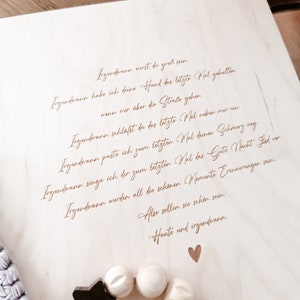 Irgendwann wirst du groß sein.
Irgendwann habe ich deine Hand das letzte Mal gehalten,
wenn wir über die Straße gehen.
Irgendwann schläfst du das letzte Mal neben mir ein.
Irgendwann puste ich zum letzten Mal deinen Schmerz weg.
Irgendwann singe ich dir zum letzten Mal das Gute Nacht Lied vor.
Irgendwann werden all die schönen Momente Erinnerungen sein.
Also sollen sie schön sein.
Heute und irgendwann.